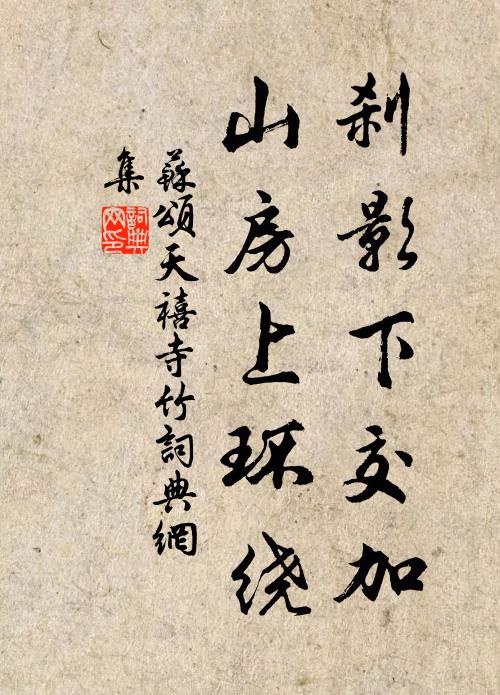 刹影下交加
山房上环绕
蘇頌天禧寺竹詞典網
集
詞典网印